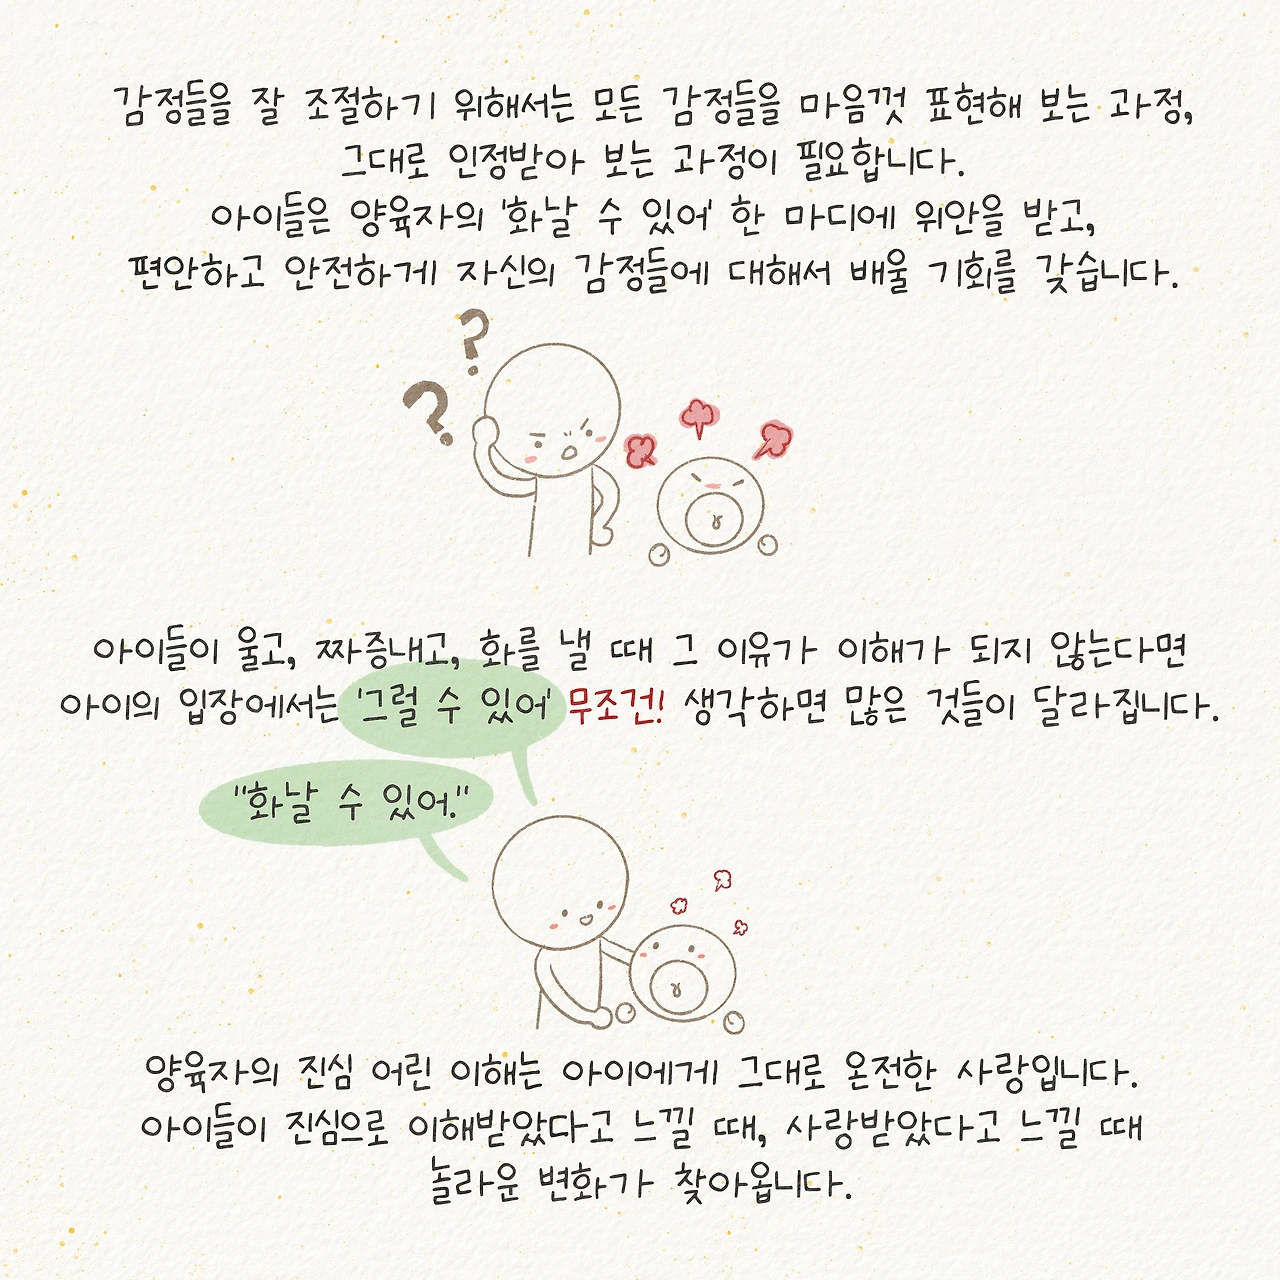 감정들을 잘 조절하기 위해서는 모든 감정들을 마음껏 표현해 보는 과정,
그대로 인정받아 보는 과정이 필요합니다.
아이들은 양육자의 '화날 수 있어' 한 마디에 위안을 받고,
편안하고 안전하게 자신의 감정들에 대해서 배울 기회를 갖습니다.
? ?
아이들이 울고, 짜증내고, 화를 낼 때 그 이유가 이해가 되지 않는다면
아이의 입장에서는 '그럴 수 있어' 무조건! 생각하면 많은 것들이 달라집니다.
"화날 수 있어."
양육자의 진심 어린 이해는 아이에게 그대로 온전한 사랑입니다.
아이들이 진심으로 이해받았다고 느낄 때, 사랑받았다고 느낄 때
놀라운 변화가 찾아옵니다.